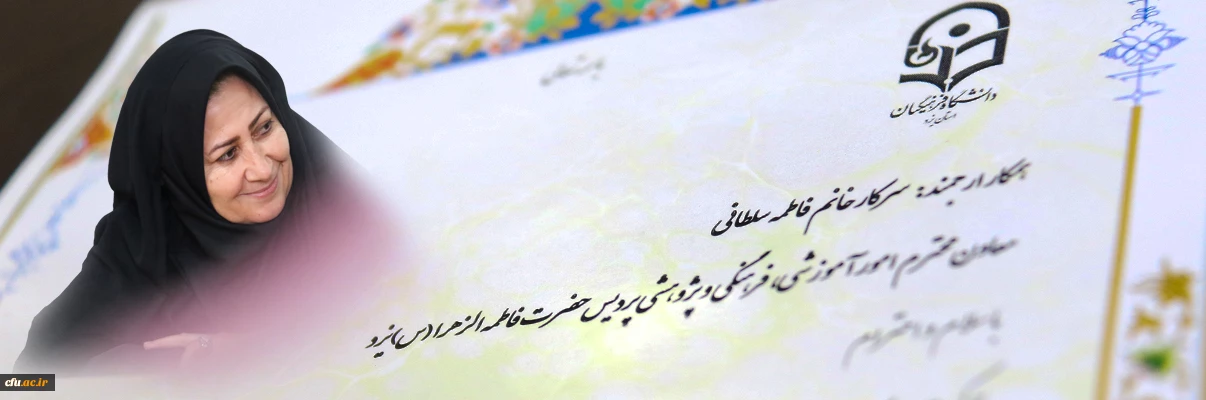 دانشگاه فرهنگیان
استان یزد
همکار ارجمند: سرکار خانم فاطمه سلطانی
معاون محترم امور آموزشی، فرهنگی و پژوهشی پردیس حضرت فاطمه الزهرا (س) یزد
با سلام و احترام
cfu.ac.ir